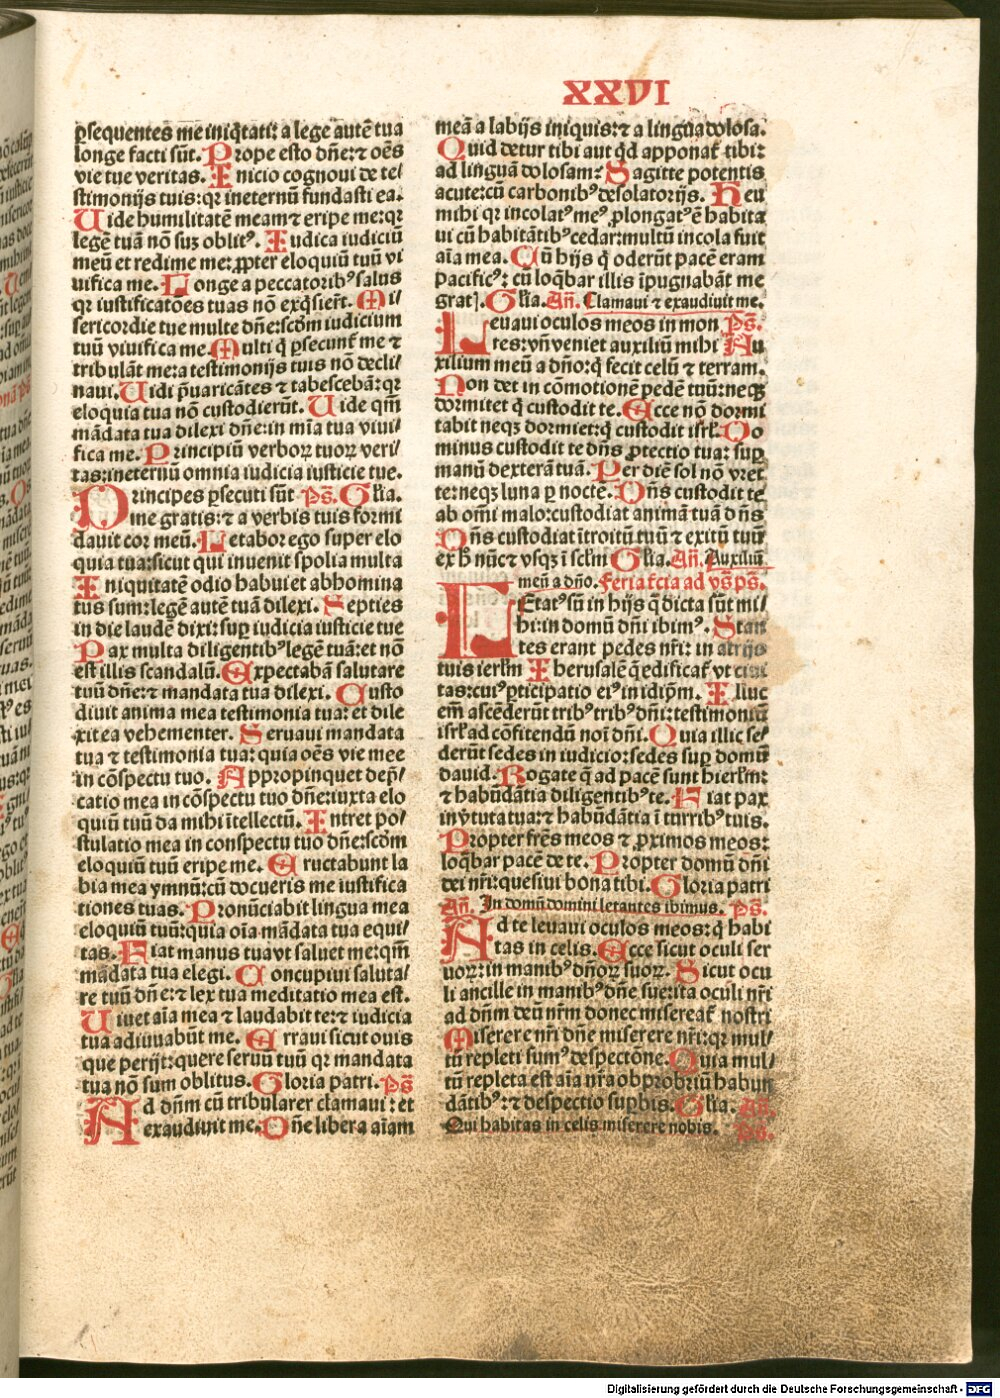 XXVI
ꝑsequentes me iniq̈tati: a lege autē tua
longe facti sūt. Prope esto dn̄e: ⁊ oēs
vie tue veritas. Inicio cognoui de te/
stimonijs tuis: qꝛ ineternū fundasti ea.
Uide humilitatē meam ⁊ eripe me: qꝛ
legē tuā nō sum oblitꝰ. Iudica iudiciū
meū et redime me: ꝓpter eloquiū tuū vi
uifica me. Longe a peccatoribꝰ salus
qꝛ iustificatões tuas nō exq̈siert̄. Mi/
sericordie tue multe dn̄e: scd̄m iudicium
tuū viuifica me. Multi q̇ ꝑsecunt̄ me ⁊
tribulāt me: a testimonijs tuis nō decli/
naui. Uidi p̄uaricātes ⁊ tabescebā: qꝛ
eloquia tua nō custodierūt. Uide qm̄
mādata tua dilexi dn̄e: in mīa tua viui/
fica me. Principiū verboꝝ tuoꝝ veri/
tas: ineternū omnia iudicia iusticie tue.
Principes ꝑsecuti sūt Ps̄. Gl̄ia.
me gratis: ⁊ a verbis tuis formi
dauit cor meū. Letabor ego super elo
quia tua: sicut qui inuenit spolia multa
Iniquitatē odio habui et abhomina
tus sum: legē autē tuā dilexi. Septies
in die laudē dixi: suꝑ iudicia iusticie tue
Pax multa diligentibꝰ legē tuā: et nō
est illis scandalū. Expectabā salutare
tuū dn̄e: ⁊ mandata tua dilexi. Custo
diuit anima mea testimonia tua: et dile
xit ea vehementer. Seruaui mandata
tua ⁊ testimonia tua: quia oēs vie mee
in cōspectu tuo. Appropinquet dep̄/
catio mea in cōspectu tuo dn̄e: iuxta elo
quiū tuū da mihi ītellectū. Intret po/
stulatio mea in conspectu tuo dn̄e: scd̄m
eloquiū tuū eripe me. Eructabunt la
bia mea ymnū: cū docueris me iustifica
tiones tuas. Pronūciabit lingua mea
eloquiū tuū: quia oīa mādata tua equi/
tas. Fiat manus tua vt saluet me: qm̄
mādata tua elegi. Concupiui saluta/
re tuū dn̄e: ⁊ lex tua meditatio mea est.
Uiuet aīa mea ⁊ laudabit te: ⁊ iudicia
tua adiuuabūt me. Erraui sicut ouis
que perijt: quere seruū tuū qꝛ mandata
tua nō sum oblitus. Gloria patri. Ps̄
Ad dn̄m cū tribularer clamaui: et
exaudiuit me. Dn̄e libera aīam
meā a labijs iniquis: ⁊ a lingua dolosa.
Quid detur tibi aut qd̄ apponat̄ tibi:
ad linguā dolosam: Sagitte potentis
acute: cū carbonibꝰ desolatorijs. Heu
mihi qꝛ incolatꝰ meꝰ ꝓlongatꝰ ē habita
ui cū habitātibꝰ cedar: multū incola fuit
aīa mea. Cū hijs q̇ oderūt pacē eram
pacificꝰ: cū loq̈bar illis īpugnabāt me
gratʒ. Gl̄ia. An̄. Clamaui ⁊ exaudiuit me.
Leuaui oculos meos in mon Ps̄.
tes: vn̄ veniet auxiliū mihi Au
xilium meū a dn̄o: q̇ fecit celū ⁊ terram.
Non det in cōmotionē pedē tuū: neqꝫ
dormitet q̇ custodit te. Ecce nō dormi
tabit neqꝫ dormiet: q̇ custodit isrl̄. Do
minus custodit te dn̄s ꝓtectio tua: suꝑ
manū dexterā tuā. Per diē sol nō vret
te: neqꝫ luna ꝑ nocte. Dn̄s custodit te
ab om̄i malo: custodiat animā tuā dn̄s
Dn̄s custodiat ītroitū tuū ⁊ exitū tuū
ex h̄ nūc ⁊ vsqꝫ ī sclm̄ Gl̄ia. An̄. Auxiliū
meū a dn̄o. Feria t̄cia ad vs̄ps̄.
LEtatꝰ sū in hijs q̄ dicta sūt mi/
hi: in domū dn̄i ibimꝰ. Stan
tes erant pedes nr̄i: in atrijs
tuis ierl̄m Iherusalē q̄ edificat̄ vt ciui
tas: cuiꝰ ꝑticipatio eiꝰ in idip̄m. Illuc
em̄ ascēderūt tribꝰ tribꝰ dn̄i: testimoniū
isrl̄ ad cōfitendū noī dn̄i. Quia illic se/
derūt sedes in iudicio: sedes suꝑ domū
dauid. Rogate q̄ ad pacē sunt hierl̄m:
⁊ habūdātia diligentibꝰ te. Fiat pax
in v̇tute tua: ⁊ habūdātia ī turribꝰ tuis.
Propter frēs meos ⁊ ꝓximos meos:
loq̈bar pacē de te. Propter domū dn̄i
dei nr̄i: quesiui bona tibi. Gloria patri
An̄. In domū domini letantes ibimus. Ps̄.
Ad te leuaui oculos meos: q̇ habi
tas in celis. Ecce sicut oculi ser
uoꝝ: in manibꝰ dn̄oꝝ suoꝝ. Sicut ocu
li ancille in manibꝰ dn̄e sue: ita oculi nr̄i
ad dn̄m deū nr̄m donec misereat̄ nostri
Miserere nr̄i dn̄e miserere nr̄i: qꝛ mul/
tū repleti sumꝰ despectōne. Quia mul/
tū repleta est aīa nr̄a obprobriū habun
dātibꝰ: ⁊ despectio suꝑbis. Gl̄ia. An̄.
Qui habitas in celis miserere nobis. Ps̄.
Digitalisierung gefördert durch die Deutsche Forschungsgemeinschaft - DFG